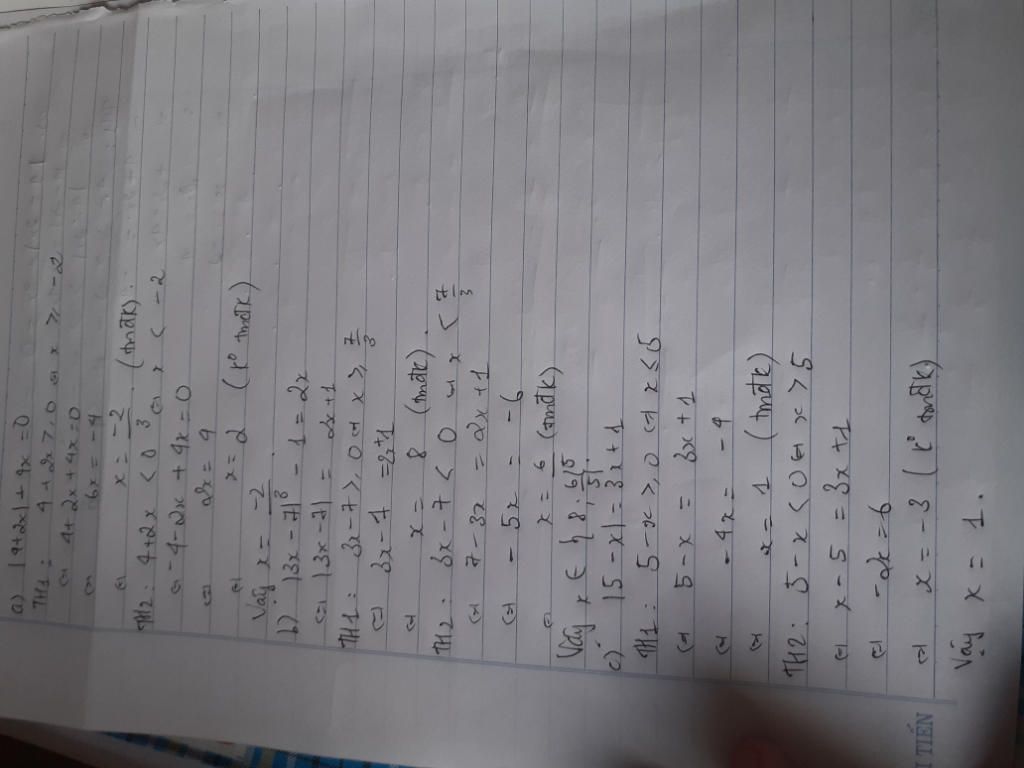 a) |4+2x| + 4x = 0
TH1: 4 + 2x ≥ 0 ⇔ x ≥ -2
⇔ 4 + 2x + 4x = 0
⇔ 6x = -4
⇔ x = -2/3 (tmđk).
TH2: 4+2x < 0 ⇔ x < -2
⇔ -4 - 2x + 4x = 0
⇔ 2x = 4
⇔ x = 2 (k° tmđk)
Vậy x = -2/3
b) |3x - 7| - 1 = 2x
⇔ |3x - 7| = 2x + 1
TH1: 3x - 7 ≥ 0 ⇔ x ≥ 7/3
⇔ 3x - 7 = 2x+1
⇔ x = 8 (tmđk)
TH2: 3x - 7 < 0 ⇔ x < 7/3
⇔ 7 - 3x = 2x + 1
⇔ - 5x = - 6
⇔ x = 6/5 (tmđk)
Vậy x ∈ {8; 6/5}.
c) |5 - x| = 3x + 1
TH1: 5 - x ≥ 0 ⇔ x ≤ 5
⇔ 5 - x = 3x + 1
⇔ - 4x = - 4
⇔ x = 1 (tmđk)
TH2: 5 - x < 0 ⇔ x > 5
⇔ x - 5 = 3x + 1
⇔ - 2x = 6
⇔ x = -3 (k° tmđk)
Vậy x = 1.
I TIẾN